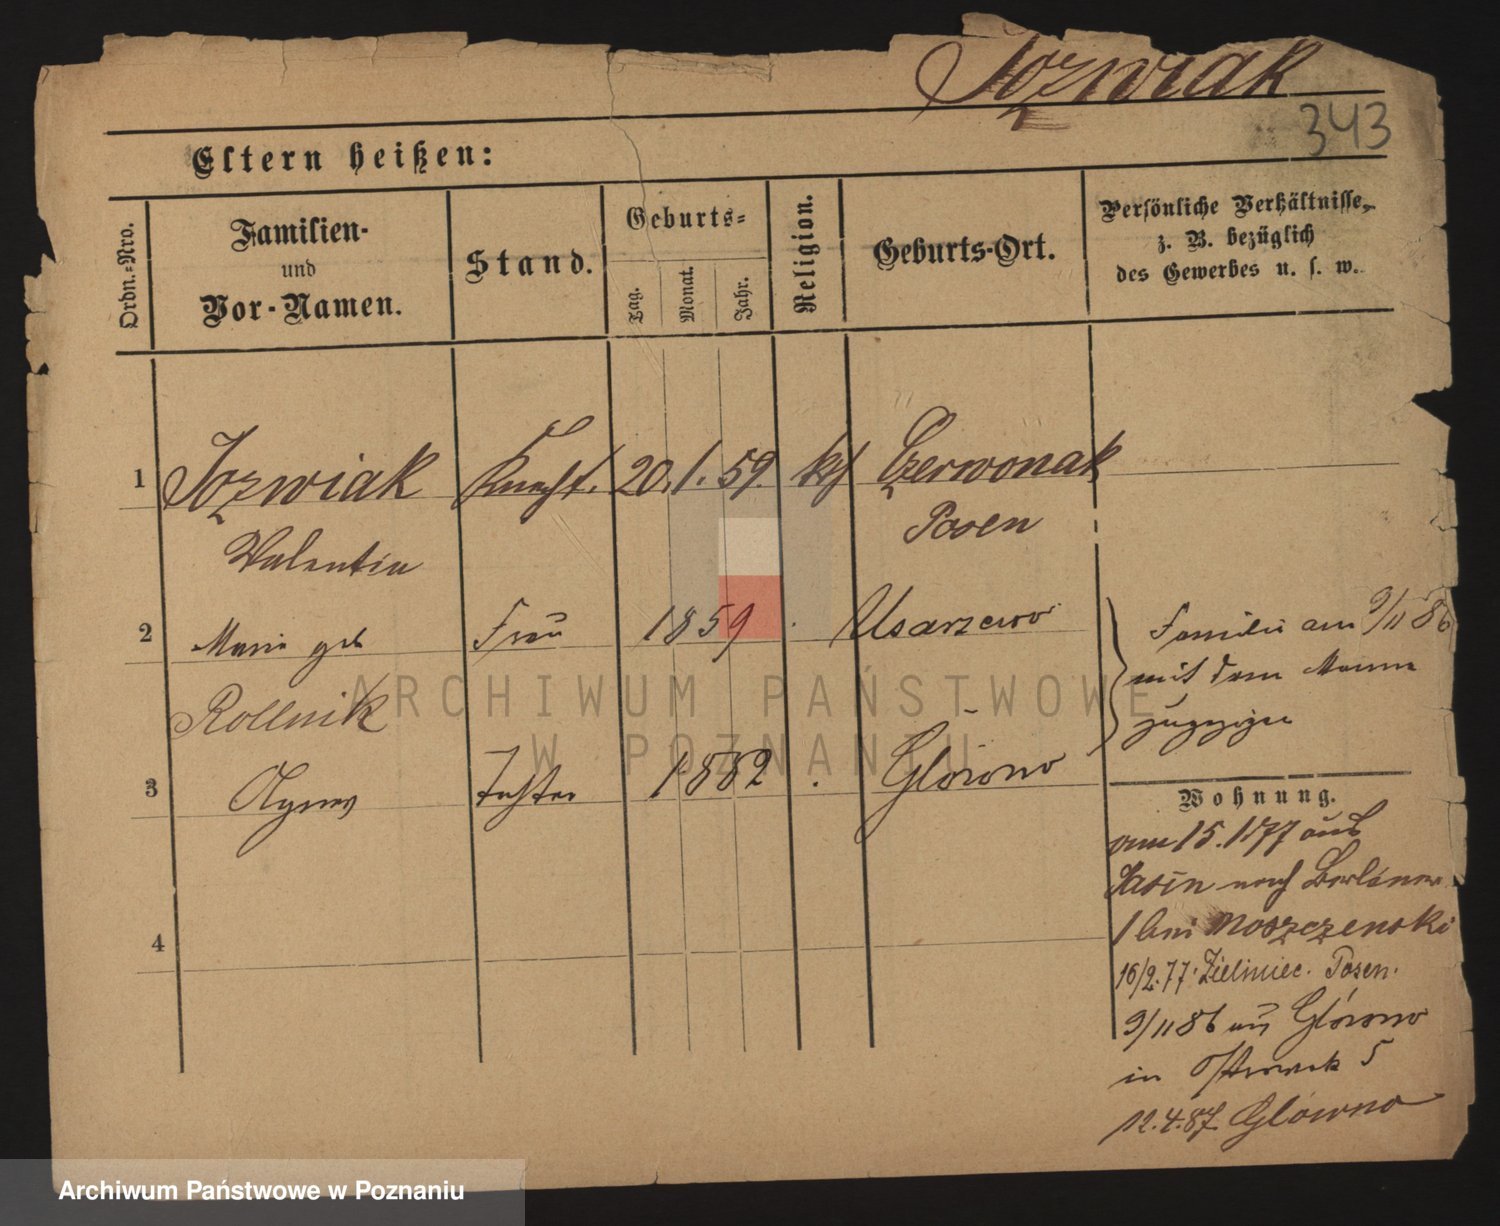 Jozwiak
343
Eltern heißen:
Ordn.-Nro.
Familien-
und
Vor-Namen.
Stand.
Geburts-
Tag.
Monat.
Jahr.
Religion.
Geburts-Ort.
Persönliche Verhältnisse,
z. B. bezüglich
des Gewerbes u. s. w.
1 Jozwiak Knecht. 20. 1. 59. kth Czerwonak
Valentin Posen
2 Marie geb Frau 1859 Usarzewo
Rollnik
3 Agnes Tochter 1882 Glówno
4
Familie am 9/11 86
mit dem Manne
zugezogen
Wohnung.
am 15.1.77 aus
nach
1 bei Moszczenski
16/2.77. Zieliniec. Posen.
9/11 86 aus Glówno
in Ostrowek 5
12.4.87. Glówno
ARCHIWUM PAŃSTWOWE
W POZNANIU
Archiwum Państwowe w Poznaniu